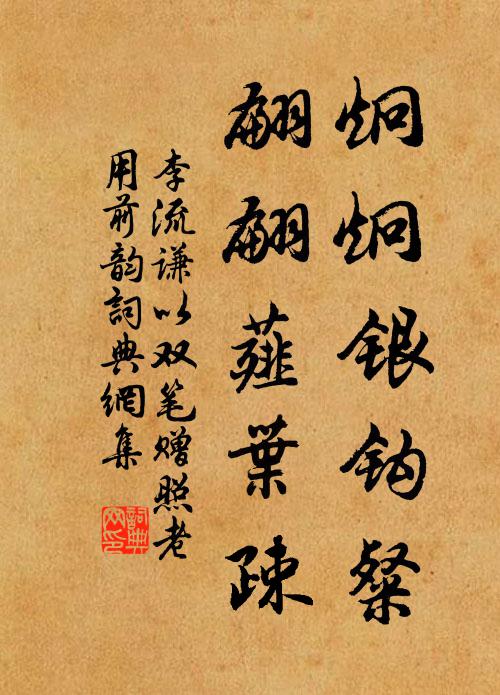 炯炯银钩粲
翩翩薤葉疎
李流谦以双笔赠照老
用前韵詞典網集
詞典網印